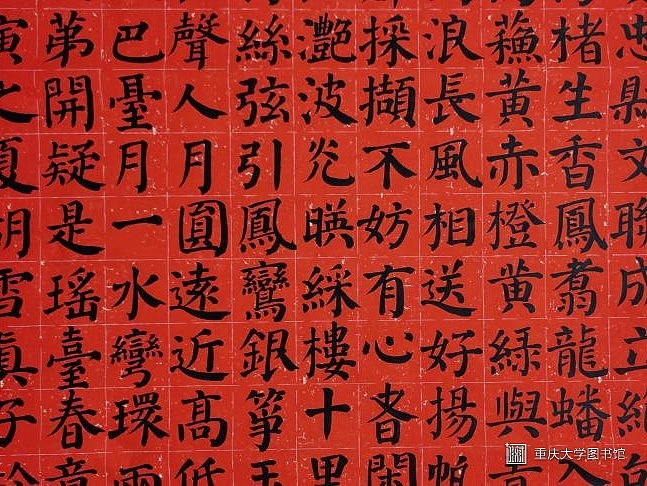 忠縣文聯成立絕句
楮生香鳳翥龍蟠入
蘓黄赤橙黄綠與
浪長風相送好揚帆
採擷不妨有心者
灧波光映綵樓十里
絲弦引鳳鸞銀箏玉
聲人月圓遠近高低
巴臺月一水彎環兩
第開疑是瑤臺春意
寅之夏胡雪真子
重庆大学图书馆